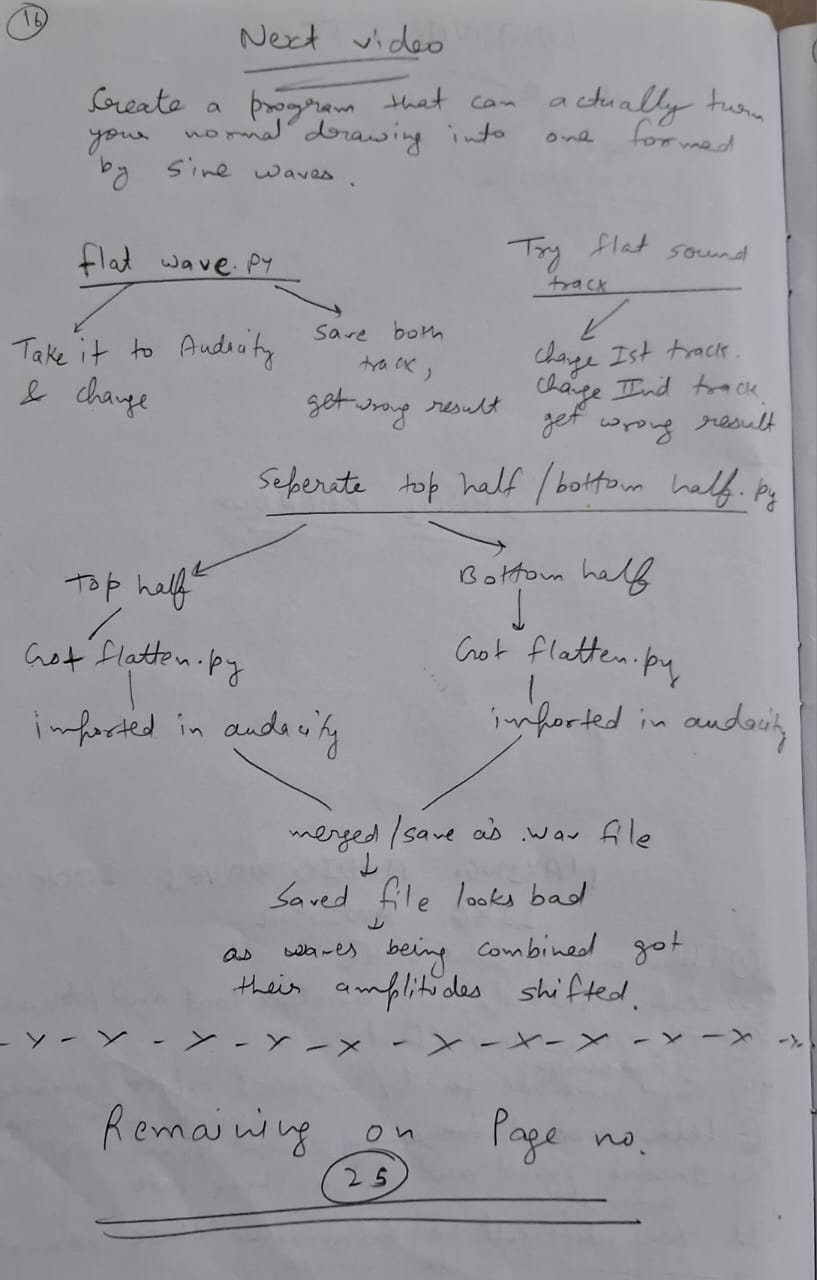 16
Next video
Create a program that can actually turn
your normal drawing into one formed
by sine waves.
flat wave.py
Take it to Audacity
& change
Save both
track,
get wrong result
Try flat sound
track
change Ist track.
change IInd track
get wrong result
Seperate top half/bottom half.py
Top half
Bottom half
Got flatten.py
Got flatten.py
imported in audacity
imported in audacity
merged/save as .wav file
Saved file looks bad
as waves being combined got
their amplitudes shifted.
- x - x - x - x - x - x - x - x - x - x - x-
Remaining on Page no.
25